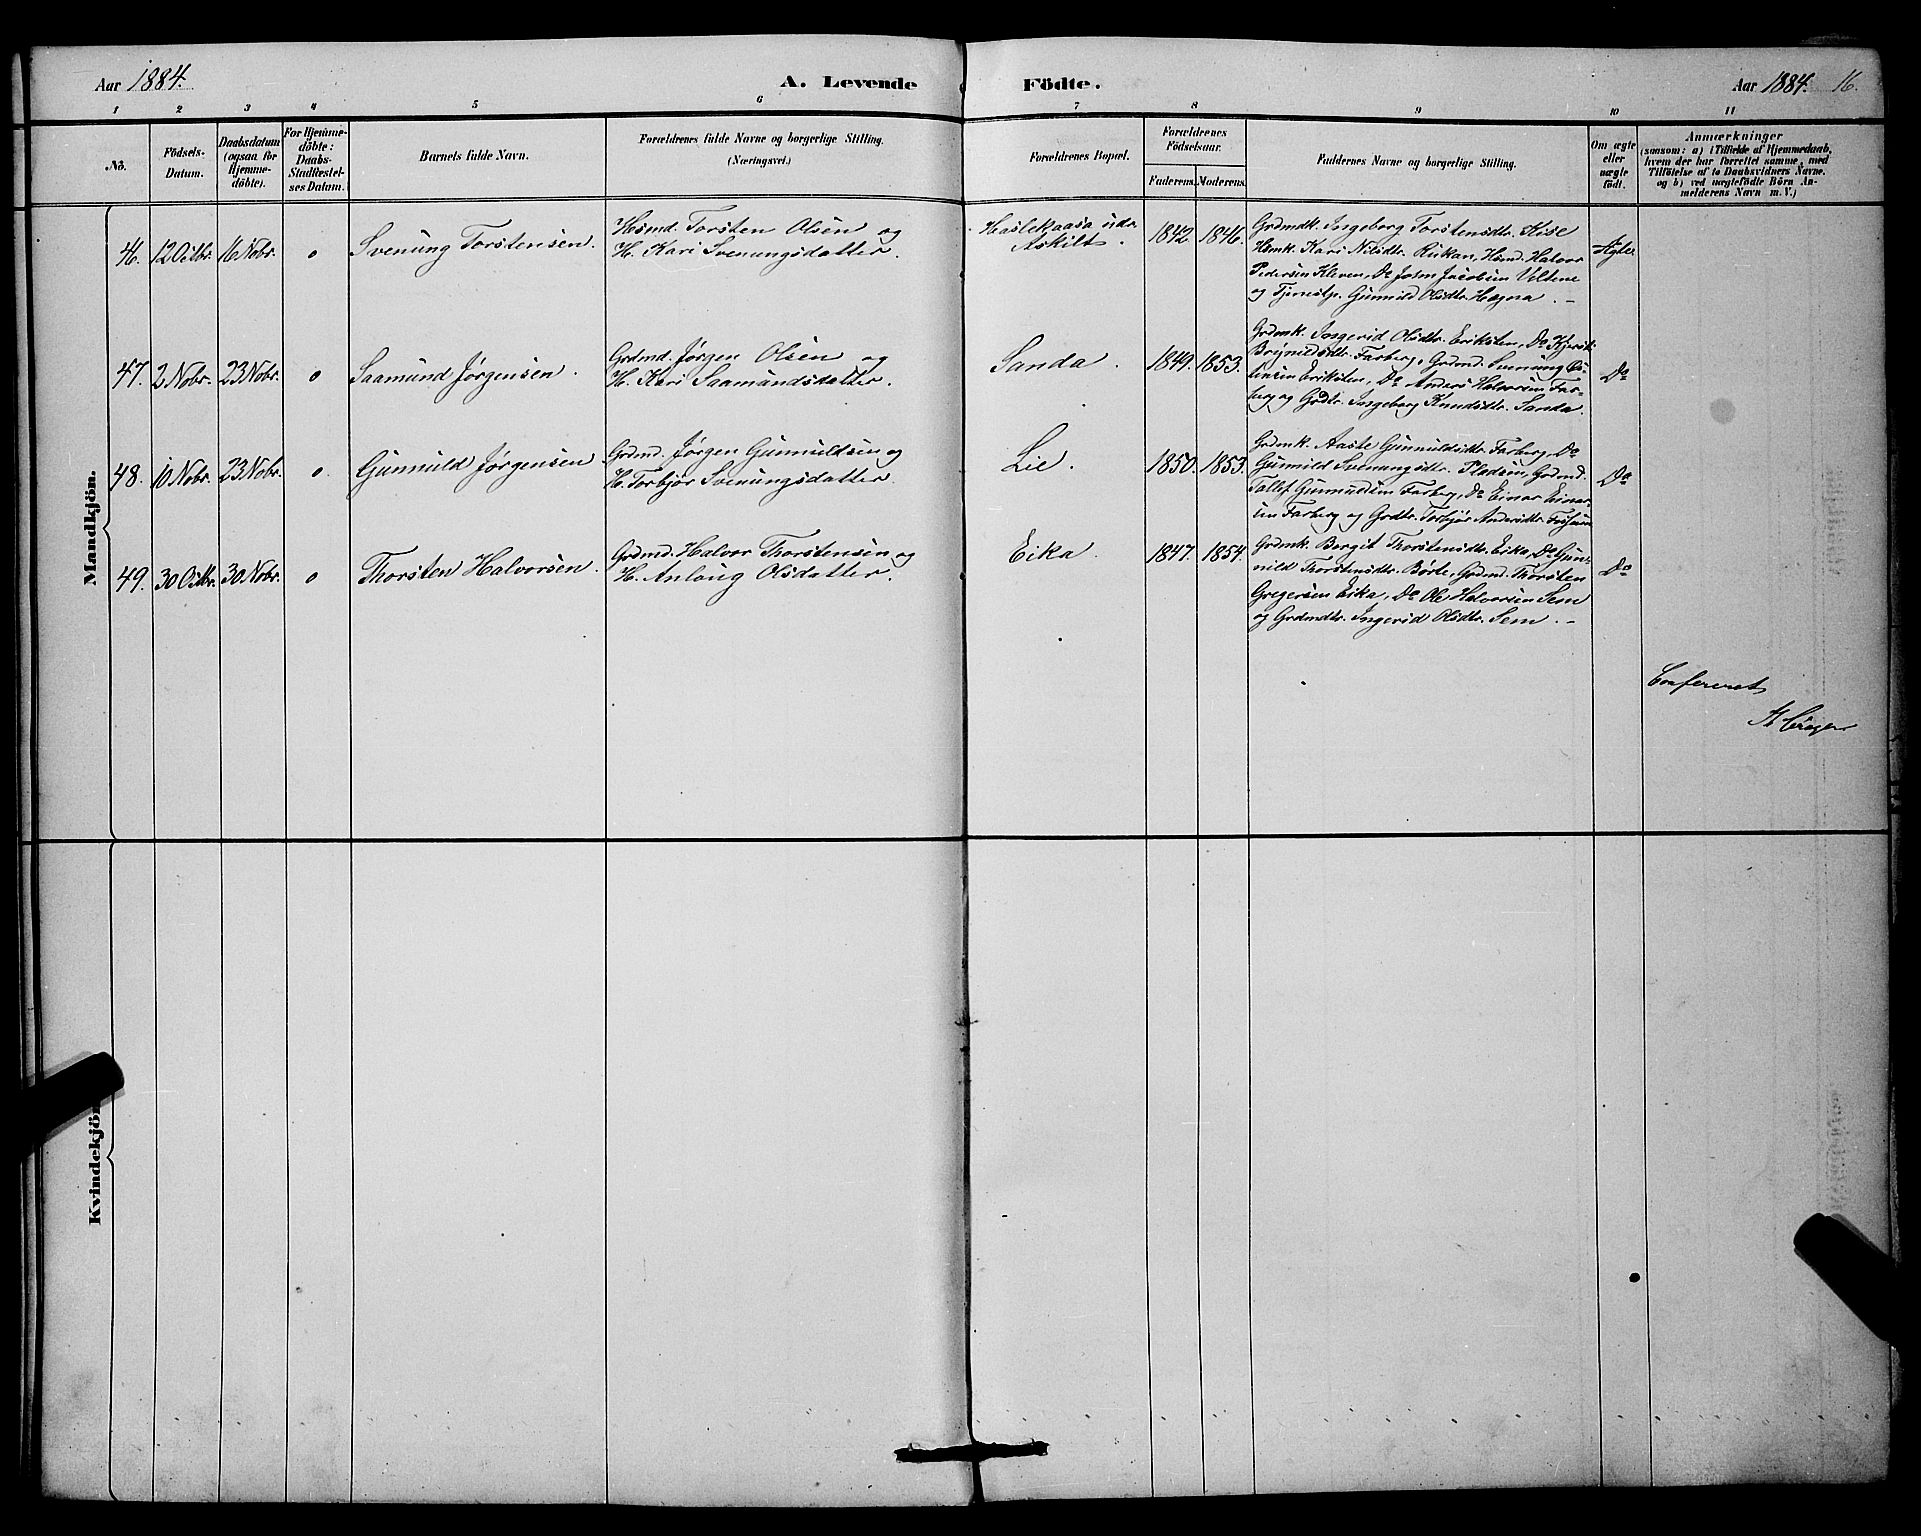 Aar 1884.
A. Levende
Födte.
Aar 1884. 16.
1 2 3 4 5 6 7 8 9 10 11
No.
Födsels-
Datum.
Daabsdatum
(ogsaa for
Hjemme-
döbte).
For Hjemme-
döbte:
Daabs-
Stadfæstel-
ses Datum.
Barnets fulde Navn.
Forældrenes fulde Navne og borgerlige Stilling.
(Næringsvei.)
Forældrenes Bopæl.
Forældrenes
Födselsaar.
Faderens. Moderens.
Faddernes Navne og borgerlige Stilling.
Om ægte
eller
uægte
födt.
Anmærkninger
(saasom: a) i Tilfælde af Hjemmedaab,
hvem der har forrettet samme, med
Tilföielse af to Daabsvidners Navne,
og b) ved uægtefödte Börn An-
melderens Navn m. V.)
Mandkjön.
46. 12 Octbr. 16 Nobr. 0 Svenung Torstensen.
Hsmd. Torsten Olsen og
H. Kari Svenungsdatter.
Haslekaasa udr.
Askilt.
1842. 1846.
Grdmdk. Ingeborg Torstensdtr. Kise
Hsmk. Kari Nilsdtr. Rukan, Hsmd. Halvor
Pedersen Kleven, Do Josen Jacobsen Veltene
og Tjenestp. Gunnild Olsdtr. Hægna. –
Ægte.
47. 2 Nobr. 23 Nobr. 0 Saamund Jørgensen.
Grdmd. Jørgen Olsen og
H. Kari Saamundsdatter.
Sanda.
1849. 1853.
Grdmk. Ingerid Olsdtr. Eriksten, Do
Brynildsdtr. Farberg, Grdmd. Svenung
Eriksten, Do Anders Halvorsen Far-
berg og Grdtr. Ingeborg Knudsdtr. Sanda.
Do
48. 10 Nobr. 23 Nobr. 0. Gunnuld Jørgensen
Grdmd. Jørgen Gunnuldsen og
H. Torbjør Svenungsdatter.
Lie.
1850. 1853.
Grdmk. Aaste Gunnuldsdtr. Farberg, Do
Gunnild Svenungsdtr. Pladsen, Grdmd.
Tallef Gunnuldsen Farberg, Do Einar Einar-
sen Farberg og Grdtr. Torbjør Andersdtr. Fossum
Do
49. 30 Octbr. 30 Nobr. 0 Thorsten Halvorsen.
Grdmd. Halvor Thorstensen og
H. Anlaug Olsdatter.
Eika.
1847. 1854.
Grdmk. Bergit Thorstensdtr. Eika, Do Gun-
nild Thorstensdtr. Børte, Grdmd. Thorsten
Gregersen Eika, Do Ole Halvorsen Sem
og Grdmdtr. Ingerid Olsdtr. Sem. –
Do
Confereret
Kvindekjön